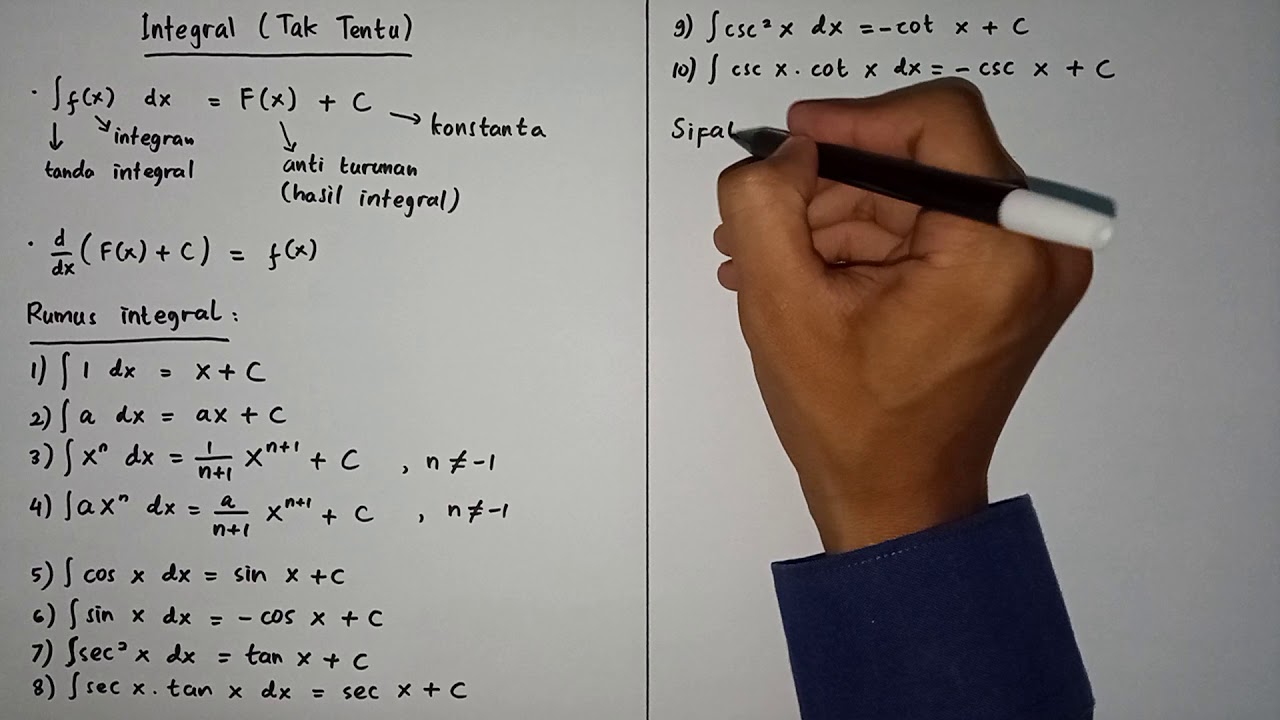 Integral (Tak Tentu)
· ∫f(x) dx = F(x) + C
konstanta
integran
tanda integral
anti turunan
(hasil integral)
· d/dx (F(x) + C) = f(x)
Rumus integral :
1) ∫ 1 dx = x + C
2) ∫ a dx = ax + C
3) ∫ xⁿ dx = 1/(n+1) xⁿ⁺¹ + C , n ≠ -1
4) ∫ axⁿ dx = a/(n+1) xⁿ⁺¹ + C , n ≠ -1
5) ∫ cos x dx = sin x + C
6) ∫ sin x dx = - cos x + C
7) ∫ sec² x dx = tan x + C
8) ∫ sec x . tan x dx = sec x + C
9) ∫ csc² x dx = - cot x + C
10) ∫ csc x . cot x dx = - csc x + C
Sifa